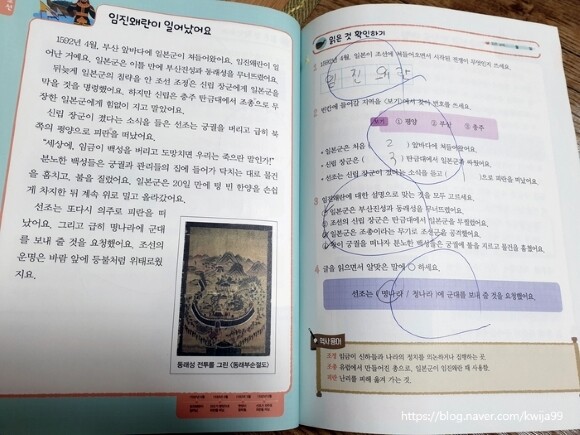 임진왜란이 일어났어요
1592년 4월, 부산 앞바다에 일본군이 쳐들어왔어요. 임진왜란이 일
어난 거예요. 일본군은 이틀 만에 부산진성과 동래성을 무너뜨렸어요.
뒤늦게 일본군의 침략을 안 조선 조정은 신립 장군에게 일본군을
막을 것을 명령했어요. 하지만 신립은 충주 탄금대에서 조총으로 무
장한 일본군에게 힘없이 지고 말았어요.
신립 장군이 졌다는 소식을 들은 선조는 궁궐을 버리고 급히 북
쪽의 평양으로 피란을 떠났어요.
"세상에, 임금이 백성을 버리고 도망치면 우리는 죽으란 말인가!"
분노한 백성들은 궁궐과 관리들의 집에 들어가 닥치는 대로 물건
을 훔치고, 불을 질렀어요. 일본군은 20일 만에 텅 빈 한양을 손쉽
게 차지한 뒤 계속 위로 밀고 올라갔어요.
선조는 또다시 의주로 피란을 떠
났어요. 그리고 급히 명나라에 군대
를 보내 줄 것을 요청했어요. 조선의
운명은 바람 앞에 등불처럼 위태로웠
지요.
동래성 전투를 그린 〈동래부순절도〉
읽은 것 확인하기
1 1592년 4월, 일본이 조선에 쳐들어오면서 시작된 전쟁이 무엇인지 쓰세요.
임 진 왜 란
2 빈칸에 들어갈 지역을 〈보기〉에서 찾아 번호를 쓰세요.
보기 ① 평양 ② 부산 ③ 충주
• 일본군은 처음 ( 2 ) 앞바다에 쳐들어왔어요.
• 신립 장군은 ( 3 ) 탄금대에서 일본군과 싸웠어요.
• 선조는 신립 장군이 졌다는 소식을 듣고 ( 1 )으로 피란을 떠났어요.
3 임진왜란에 대한 설명으로 맞는 것을 모두 고르세요.
일본군은 부산진성과 동래성을 무너뜨렸어요.
② 조선의 신립 장군은 탄금대에서 일본군을 무찔렀어요.
일본군은 조총이라는 무기로 조선군을 공격했어요.
왕이 궁궐을 떠나자 분노한 백성들은 궁궐에 불을 지르고 물건을 훔쳤어요.
4 글을 읽으면서 알맞은 말에 ○ 하세요.
선조는 ( 명나라 / 청나라 )에 군대를 보내 줄 것을 요청했어요.
역사 용어
조정 임금이 신하들과 나라의 정치를 의논하거나 집행하는 곳.
조총 유럽에서 만들어진 총으로, 일본군이 임진왜란 때 사용함.
피란 난리를 피해 옮겨 가는 것.
https://blog.naver.com/kwija99